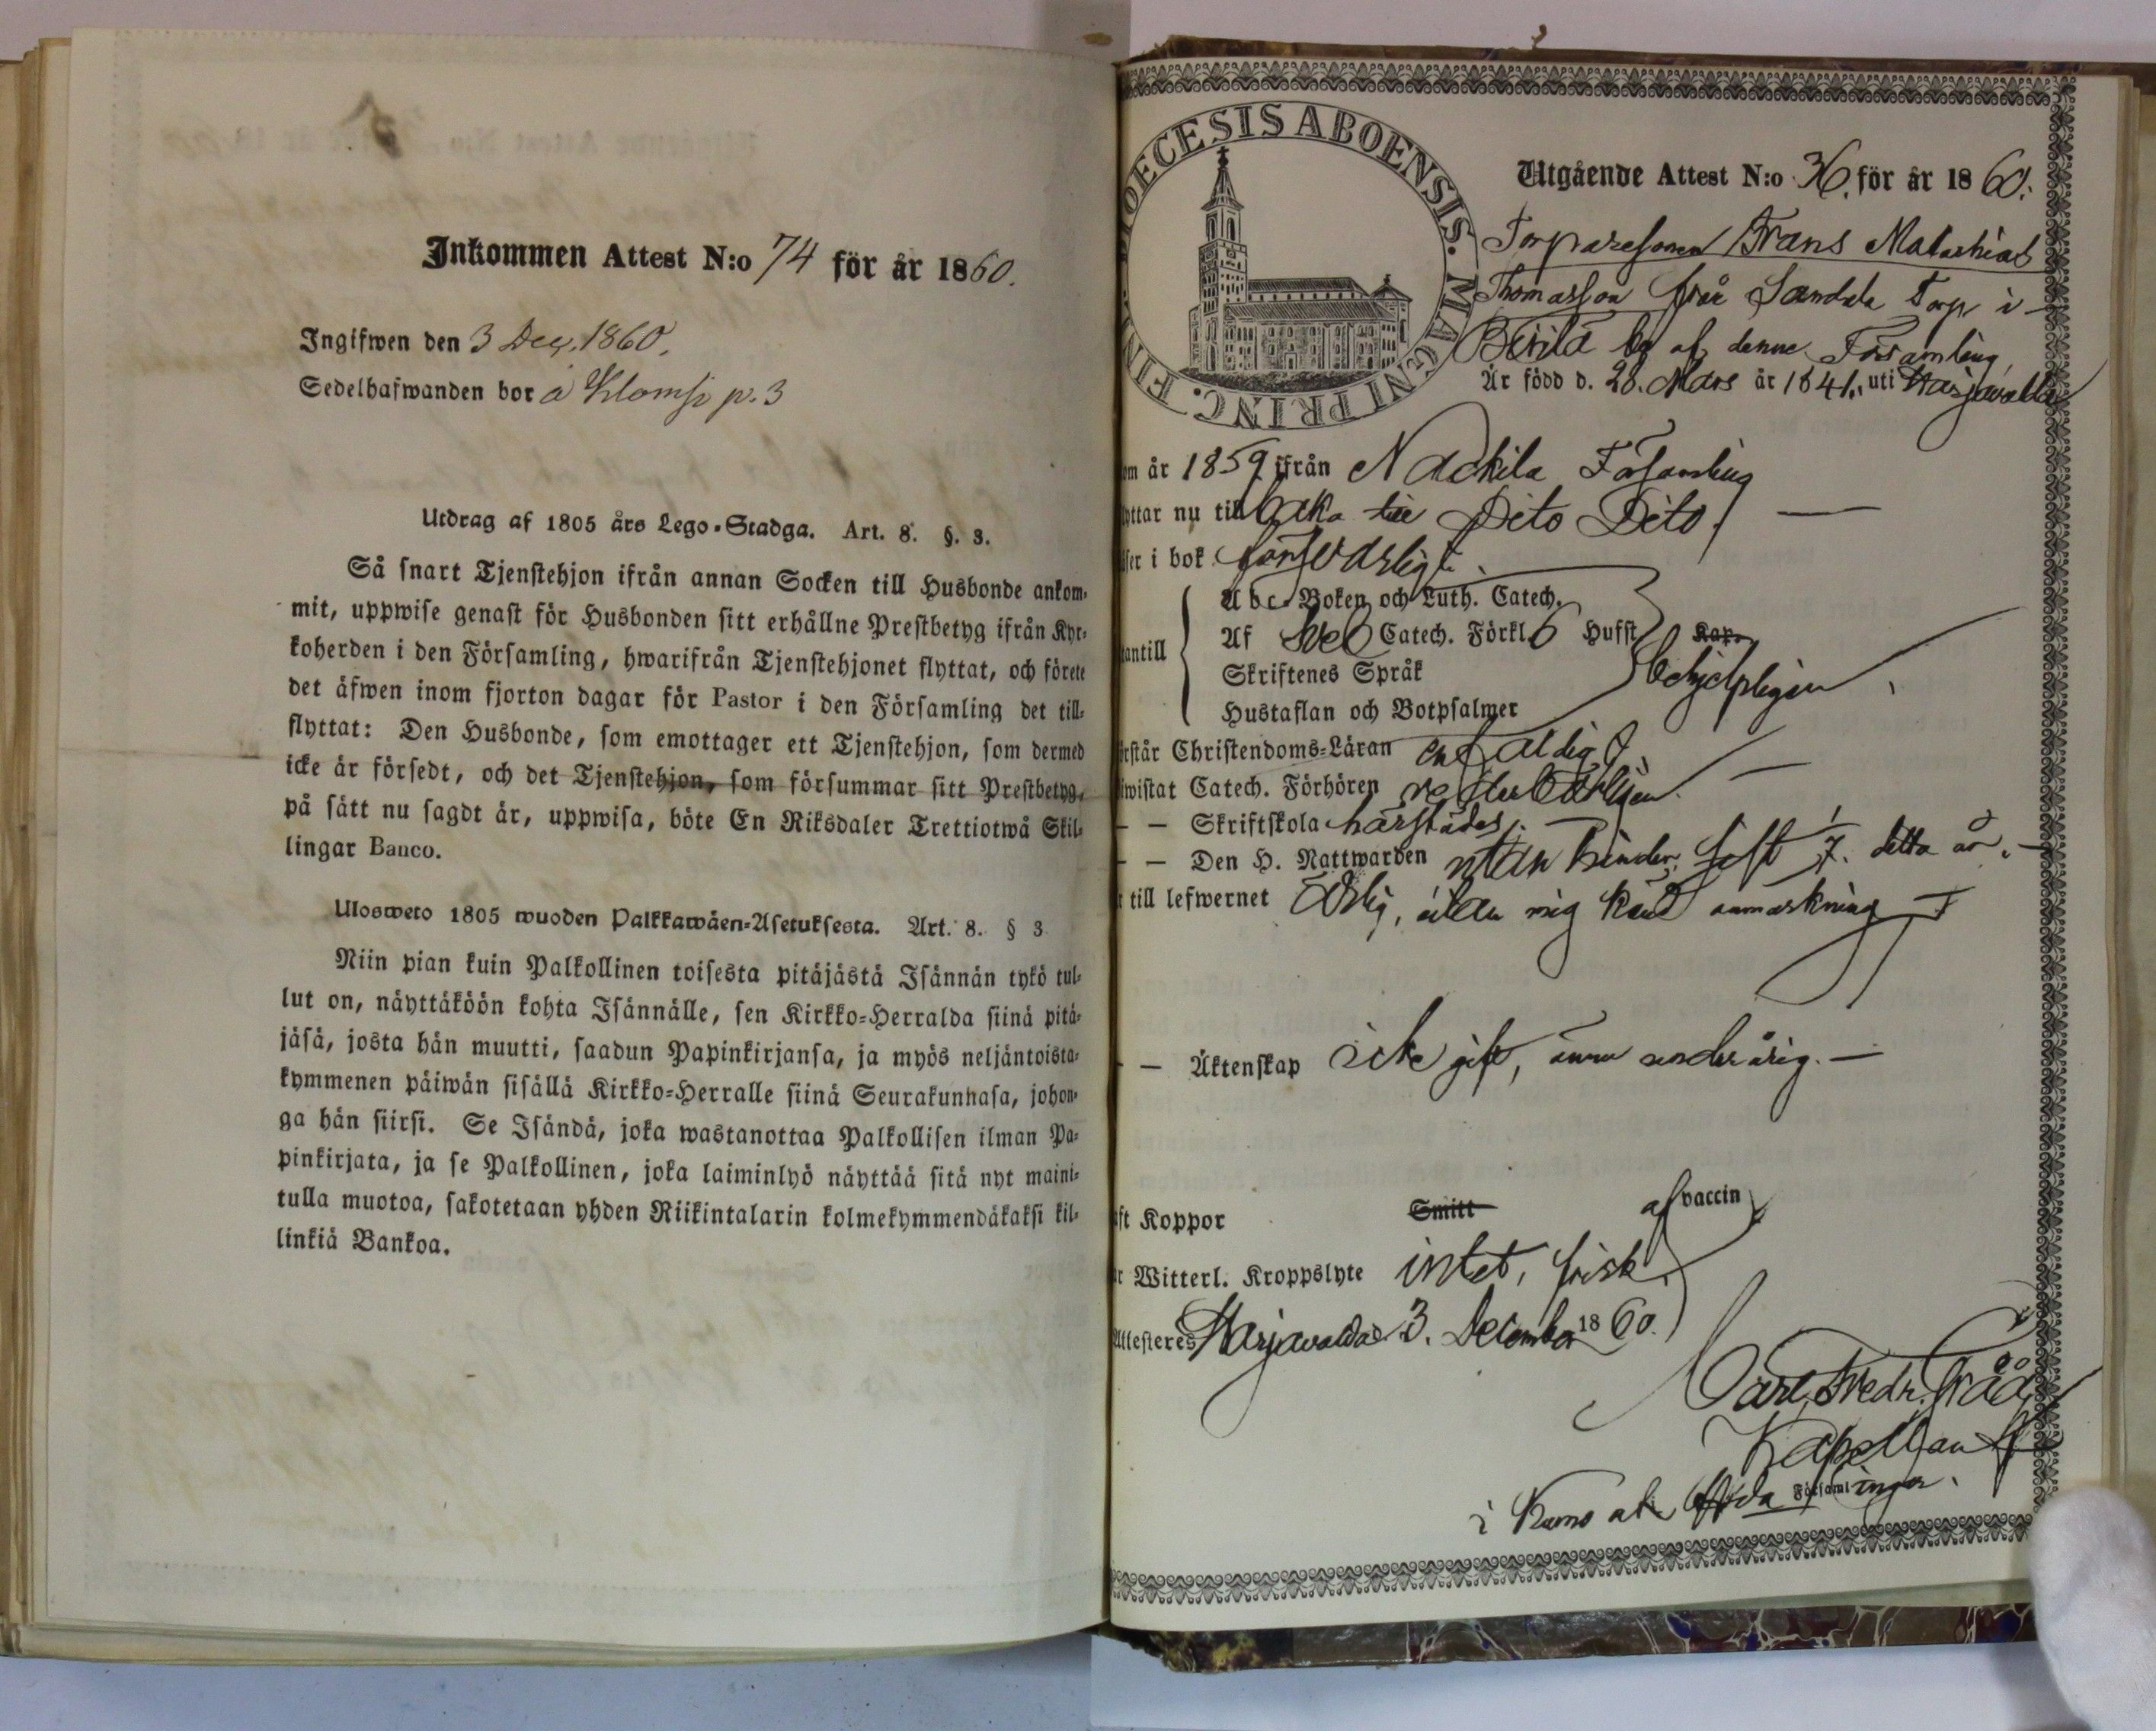 Inkommen Attest N:o 74 för år 1860.
Ingifwen den 3 Dec. 1860.
Sedelhafwanden bor å p. 3
Utdrag af 1805 års Lego-Stadga. Art. 8. §. 3.
Så snart Tjenstehjon ifrån annan Socken till Husbonde ankom-
mit, uppwise genast för Husbonden sitt erhållne Prestbetyg ifrån Kyr-
koherden i den Församling, hwarifrån Tjenstehjonet flyttat, och förete
det äfwen inom fjorton dagar för Pastor i den Församling det till-
flyttat: Den Husbonde, som emottager ett Tjenstehjon, som dermed
icke är försedt, och det Tjenstehjon, som försummar sitt Prestbetyg,
på sätt nu sagdt är, uppwisa, böte En Riksdaler Trettiotwå Skil-
lingar Banco.
Ulosweto 1805 wuoden Palkkawäen-Asetuksesta. Art. 8. § 3
Niin pian kuin Palkollinen toisesta pitäjästä Isännän tykö tul-
lut on, näyttäköön kohta Isännälle, sen Kirkko-Herralda siinä pitä-
jäsä, josta hän muutti, saadun Papinkirjansa, ja myös neljäntoista-
kymmenen päiwän sisällä Kirkko-Herralle siinä Seurakunnasa, johon-
ga hän siirsi. Se Isändä, joka wastanottaa Palkollisen ilman Pa-
pinkirjata, ja se Palkollinen, joka laiminlyö näyttää sitä nyt maini-
tulla muotoa, sakotetaan yhden Riikintalarin kolmekymmendäkaksi kil-
linkiä Bankoa.
DIOECESIS ABOENSIS. MAGNI PRINC. FIN
Utgående Attest N:o 36. för år 1860.
Torparesonen Frans Matathias
Thomasson från Sandala Torp i
by af denne Församling
Är född d. 28. Mars år 1841. uti Harjavalda
om år 1859 ifrån Nackila Församling
yttar nu tillbaka till Dito Dito.
ser i bok försvarligt.
Abc-Boken och Luth. Catech.
antill Af Sveb Catech. Förkl. 6 Hufst Kap.
Skriftenes Språk behjelpligen
Hustaflan och Botpsalmer
rstår Christendoms-Läran enfaldigt
wistat Catech. Förhören
— — Skriftskola härstädes.
— — Den H. Nattwarden utan hinder, sist detta år.
till lefwernet Ärlig, utan mig känd anmärkning
— — Äktenskap icke gift, ännu underårig. —
ft Koppor Smitt af vaccin
r Witterl. Kroppslyte intet, frisk.
Attesteres Harjavalda d. 3. December 1860.
Carl Fredr.
Kapellan
i Församlingen.